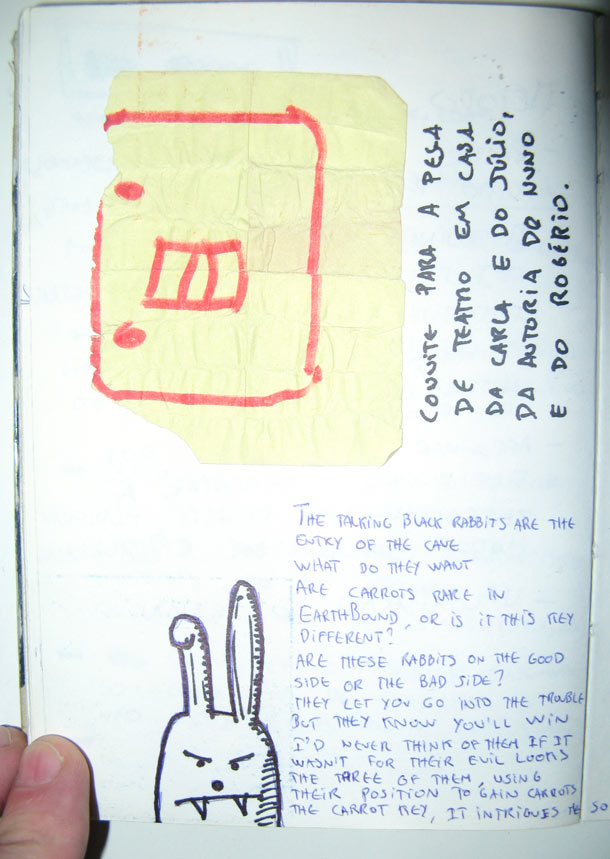 CONVITE PARA A PEÇA
DE TEATRO EM CASA
DA CARLA E DO JÚLIO,
DA AUTORIA DE NUNO
E DO ROGÉRIO.
THE TALKING BLACK RABBITS ARE THE
ENTRY OF THE CAVE
WHAT DO THEY WANT
ARE CARROTS RARE IN
EARTHBOUND, OR IS IT THIS KEY
DIFFERENT?
ARE THESE RABBITS ON THE GOOD
SIDE OR THE BAD SIDE?
THEY LET YOU GO INTO THE TROUBLE
BUT THEY KNOW YOU'LL WIN
I'D NEVER THINK OF THEM IF IT
WASN'T FOR THEIR EVIL LOOKS
THE THREE OF THEM, USING
THEIR POSITION TO GAIN CARROTS
THE CARROT KEY, IT INTRIGUES ME SO